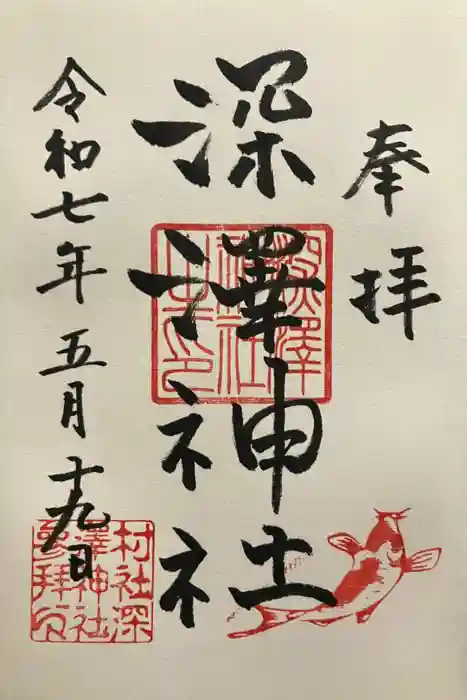 奉拝
深澤神社
令和七年五月十九日
深澤
神社
之印
村社深
澤神社
参拜